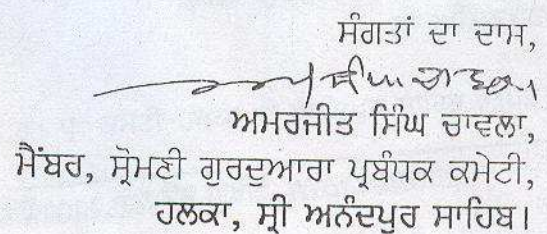 ਸੰਗਤਾਂ ਦਾ ਦਾਸ,
ਅਮਰਜੀਤ ਸਿੰਘ ਚਾਵਲਾ,
ਮੈਂਬਰ, ਸ਼੍ਰੋਮਣੀ ਗੁਰਦੁਆਰਾ ਪ੍ਰਬੰਧਕ ਕਮੇਟੀ,
ਹਲਕਾ, ਸ੍ਰੀ ਅਨੰਦਪੁਰ ਸਾਹਿਬ।